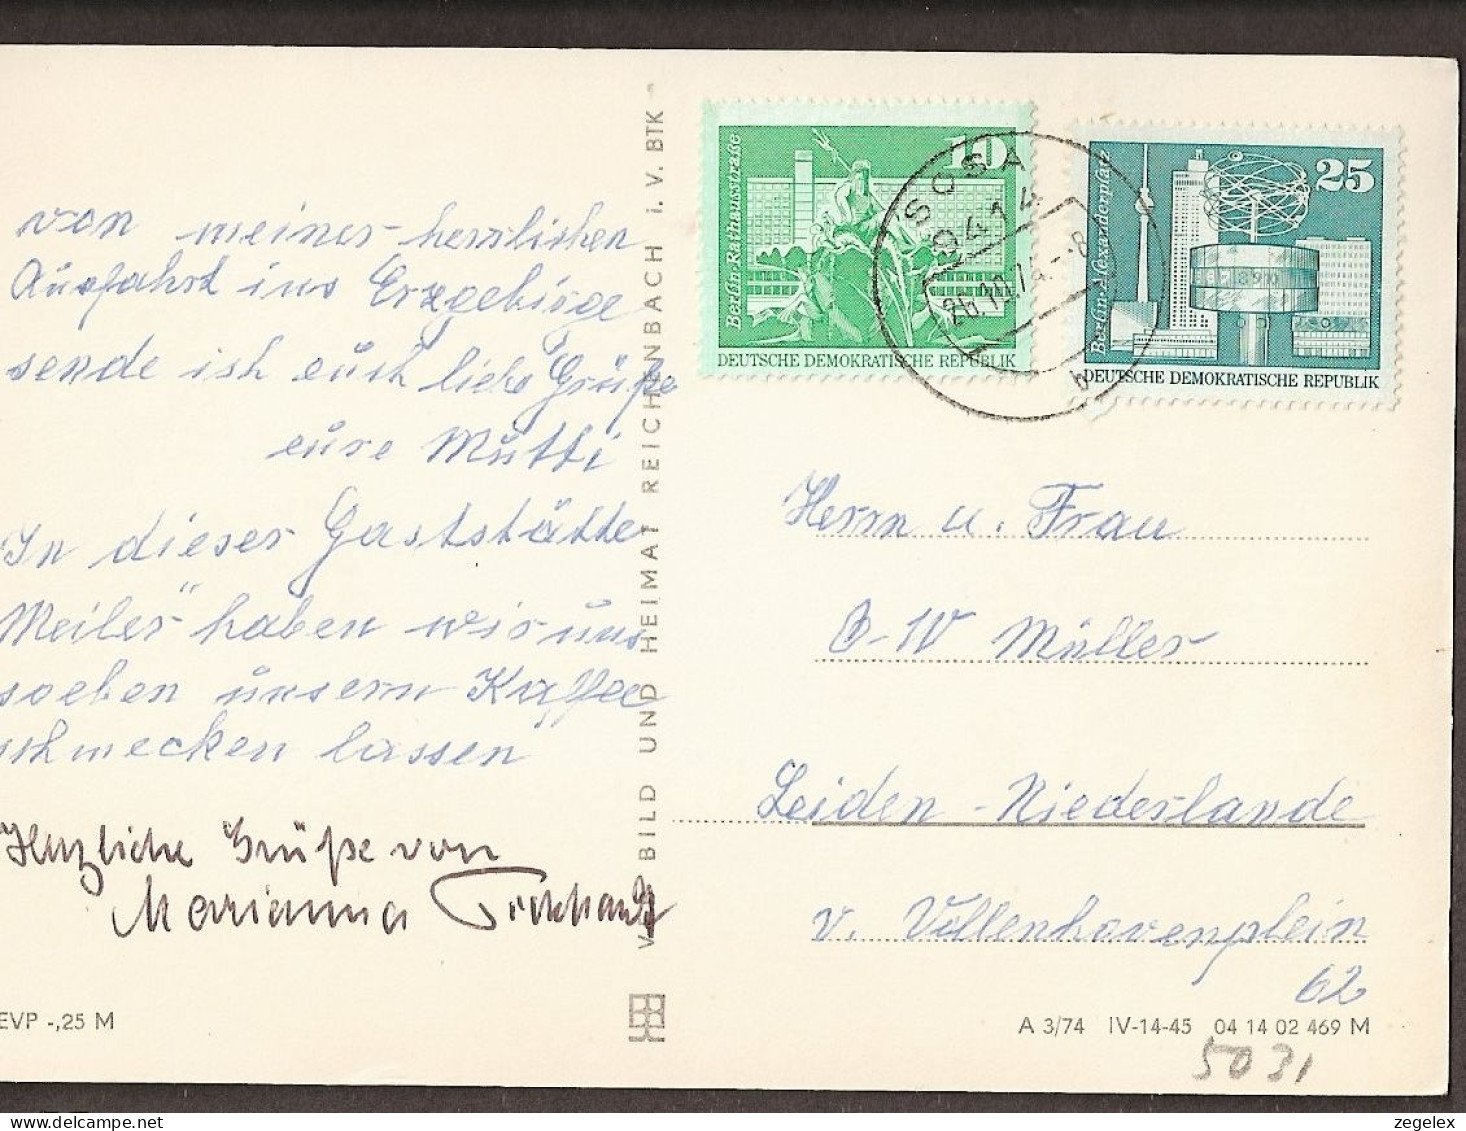 von meiner herrlichen
Ausfahrt ins Erzgebirge
sende ich euch liebe Grüße
eure Mutti
In dieser Gaststätte
Meiler" haben wir uns
soeben unsern Kaffee
schmecken lassen
Herzliche Grüße von
Marianna
EVP -,25 M
BILD UND HEIMAT REICHENBACH i. V. BTK
10
Berlin-Rathausstraße
DEUTSCHE DEMOKRATISCHE REPUBLIK
SOSA
9414
26.10.74.-8
b
25
Berlin-Alexanderplatz
DEUTSCHE DEMOKRATISCHE REPUBLIK
Herrn u. Frau
O-W Müller
Leiden - Niederlande
v. Vollenhovenplein
62
A 3/74 IV-14-45 04 14 02 469 M
5031
zegelex